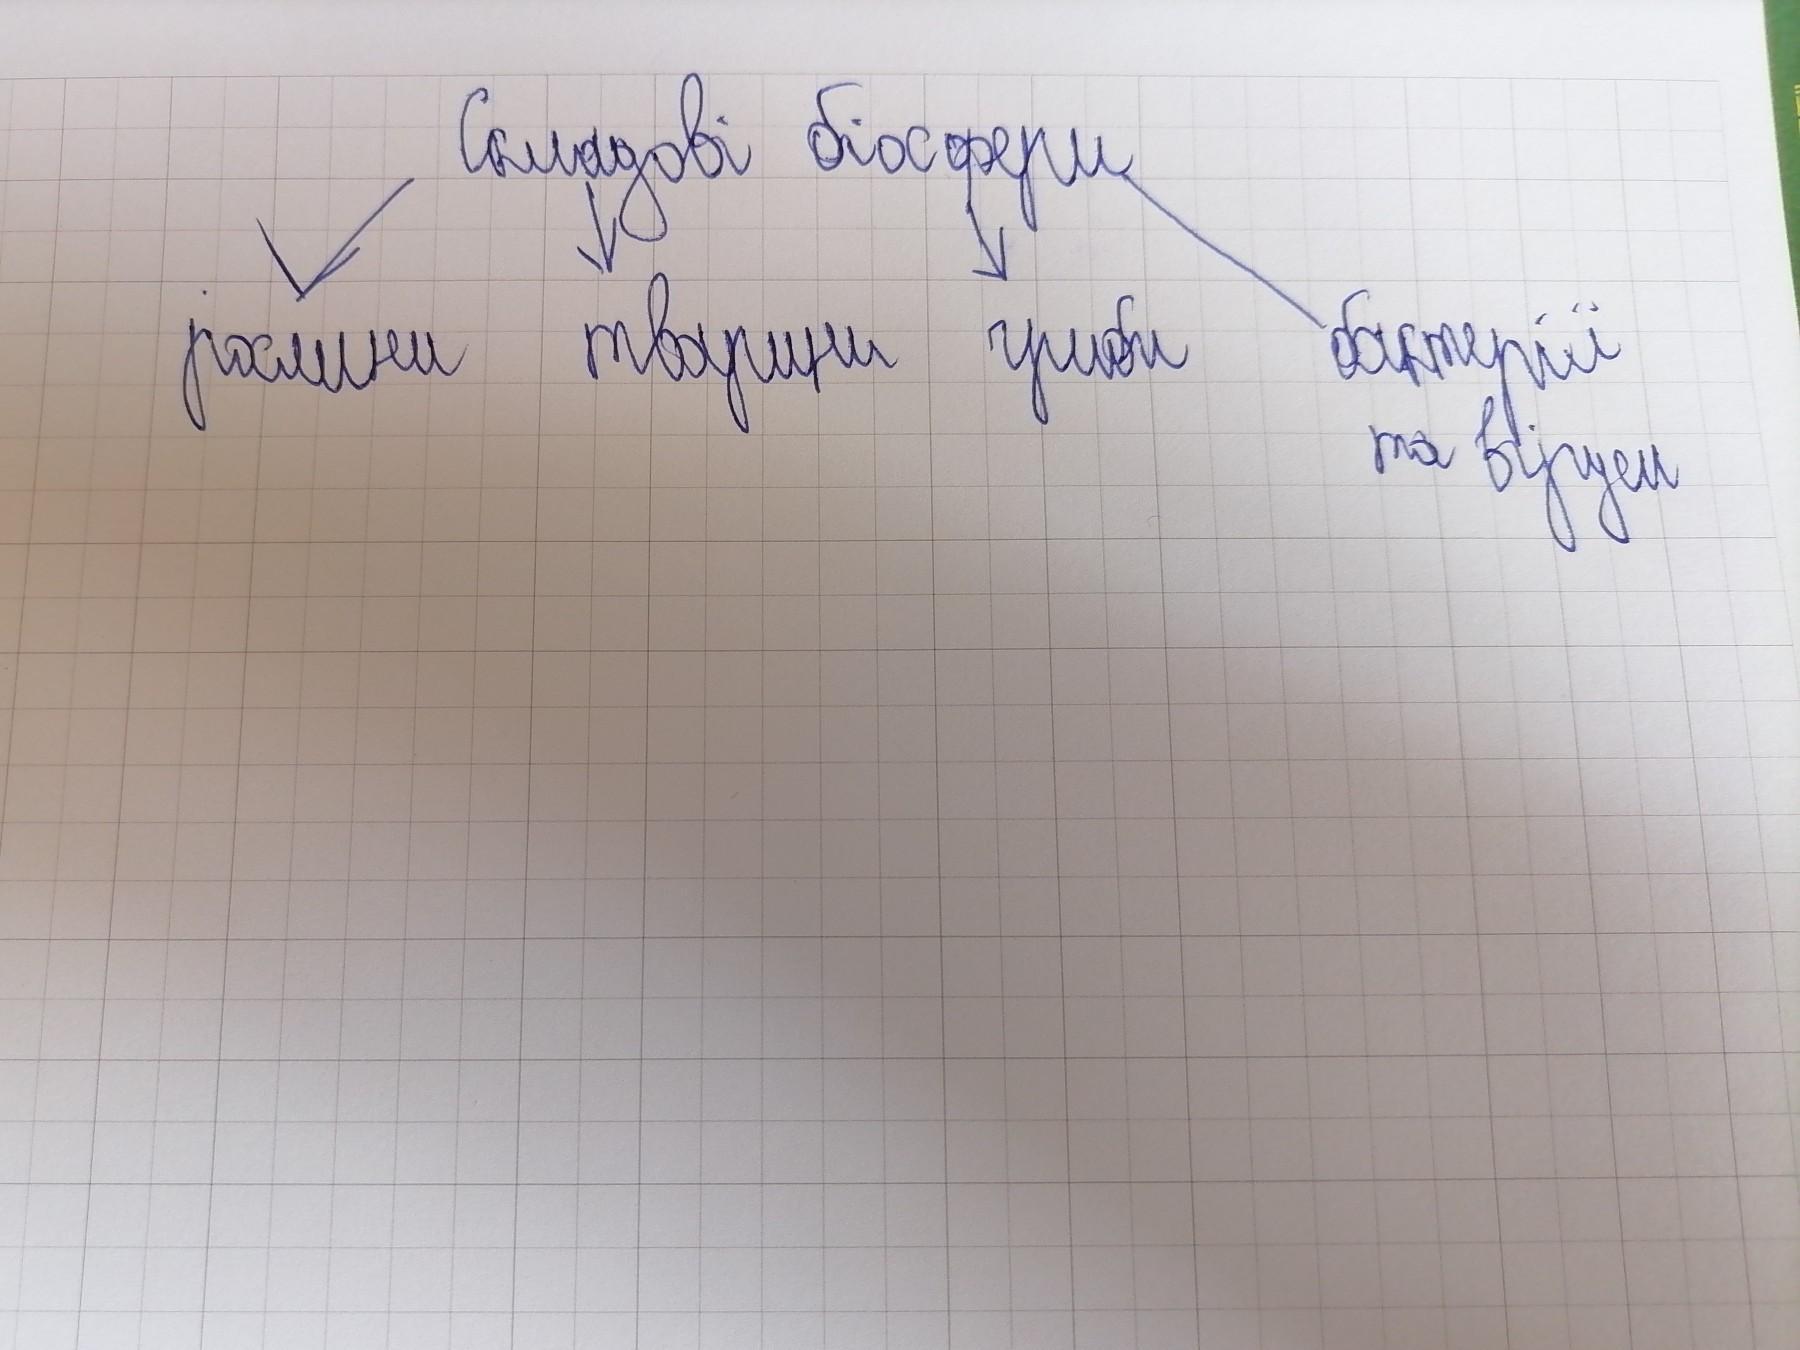 Складові біосфери
рослини тварини гриби бактерії
та віруси